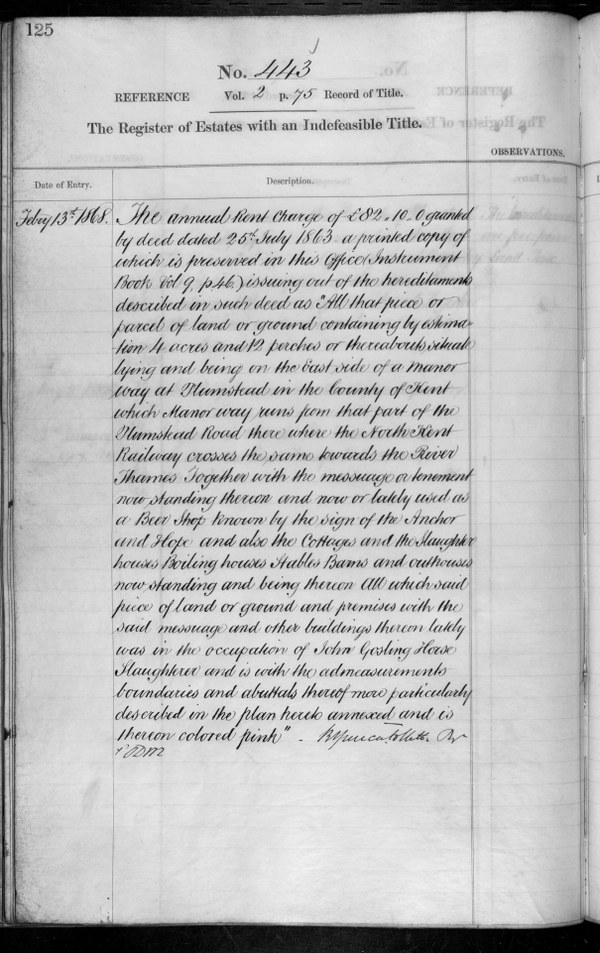 125
No. 443
REFERENCE Vol. 2 p. 75 Record of Title.
The Register of Estates with an Indefeasible Title.
OBSERVATIONS.
Date of Entry.
Description.
Febry 13th 1868.
The annual Rent Charge of £82 . 10 . 0 granted
by deed dated 25th July 1863 a printed copy of
which is preserved in this Office (Instrument
Book Vol 9, p 46.) issuing out of the hereditaments
described in such deed as "All that piece or
parcel of land or ground containing by estima-
tion 4 acres and 12 perches or thereabouts situate
lying and being on the East side of a manor
way at Plumstead in the County of Kent
which Manor way runs from that part of the
Plumstead Road there where the North Kent
Railway crosses the same towards the River
Thames Together with the messuage or tenement
now standing thereon and now or lately used as
a Beer Shop known by the sign of the Anchor
and Hope and also the Cottages and the Slaughter
houses Boiling houses Stables Barns and outhouses
now standing and being thereon All which said
piece of land or ground and premises with the
said messuage and other buildings thereon lately
was in the occupation of John Gosling Horse
Slaughterer and is with the admeasurements
boundaries and abuttals thereof more particularly
described in the plan hereto annexed and is
thereon colored pink" .